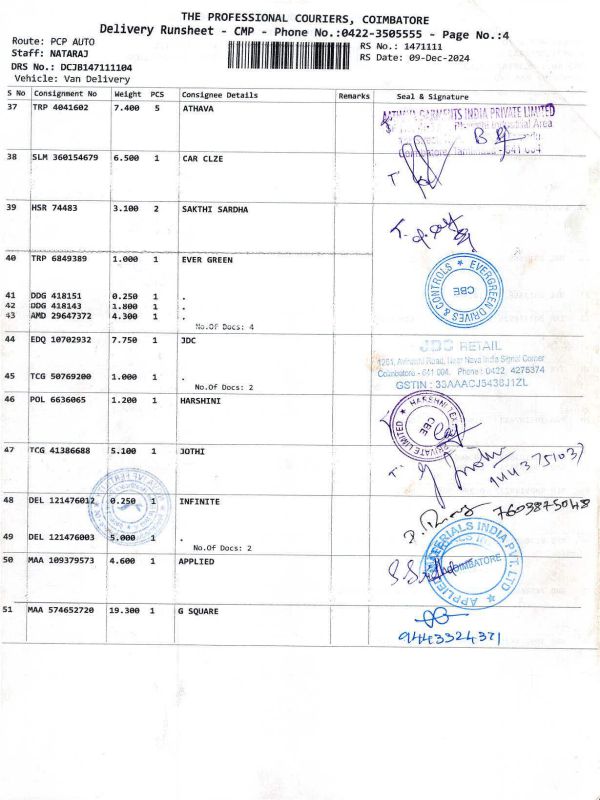 THE PROFESSIONAL COURIERS, COIMBATORE
Delivery Runsheet - CMP - Phone No.:0422-3505555 - Page No.:4
Route: PCP AUTO
Staff: NATARAJ
DRS No.: DCJB147111104
Vehicle: Van Delivery
RS No.: 1471111
RS Date: 09-Dec-2024
S No Consignment No Weight PCS Consignee Details Remarks Seal & Signature
37 TRP 4041602 7.400 5 ATHAVA
GARMENTS INDIA PRIVATE LIMITED
38 SLM 360154679 6.500 1 CAR CLZE
39 HSR 74483 3.100 2 SAKTHI SARDHA
40 TRP 6849389 1.000 1 EVER GREEN
EVERGREEN DRIVES & CONTROLS ★
CBE
41 DDG 418151 0.250 1 .
42 DDG 418143 1.800 1 .
43 AMD 29647372 4.300 1 .
No.Of Docs: 4
44 EDQ 10702932 7.750 1 JDC
JDC RETAIL
1261, Avinashi Road, Near Nava India Signal Corner
Coimbatore - 641 004. Phone : 0422 4275374
GSTIN : 33AAACJ5438J1ZL
45 TCG 50769200 1.000 1 .
No.Of Docs: 2
46 POL 6636065 1.200 1 HARSHINI
PRIVATE LIMITED
CBE
47 TCG 41386688 5.100 1 JOTHI
48 DEL 121476012 0.250 1 INFINITE
7603875048
49 DEL 121476003 5.000 1 .
No.Of Docs: 2
50 MAA 109379573 4.600 1 APPLIED
APPLIED MATERIALS INDIA PVT. LTD ★
COIMBATORE
51 MAA 574652720 19.300 1 G SQUARE
9443324371